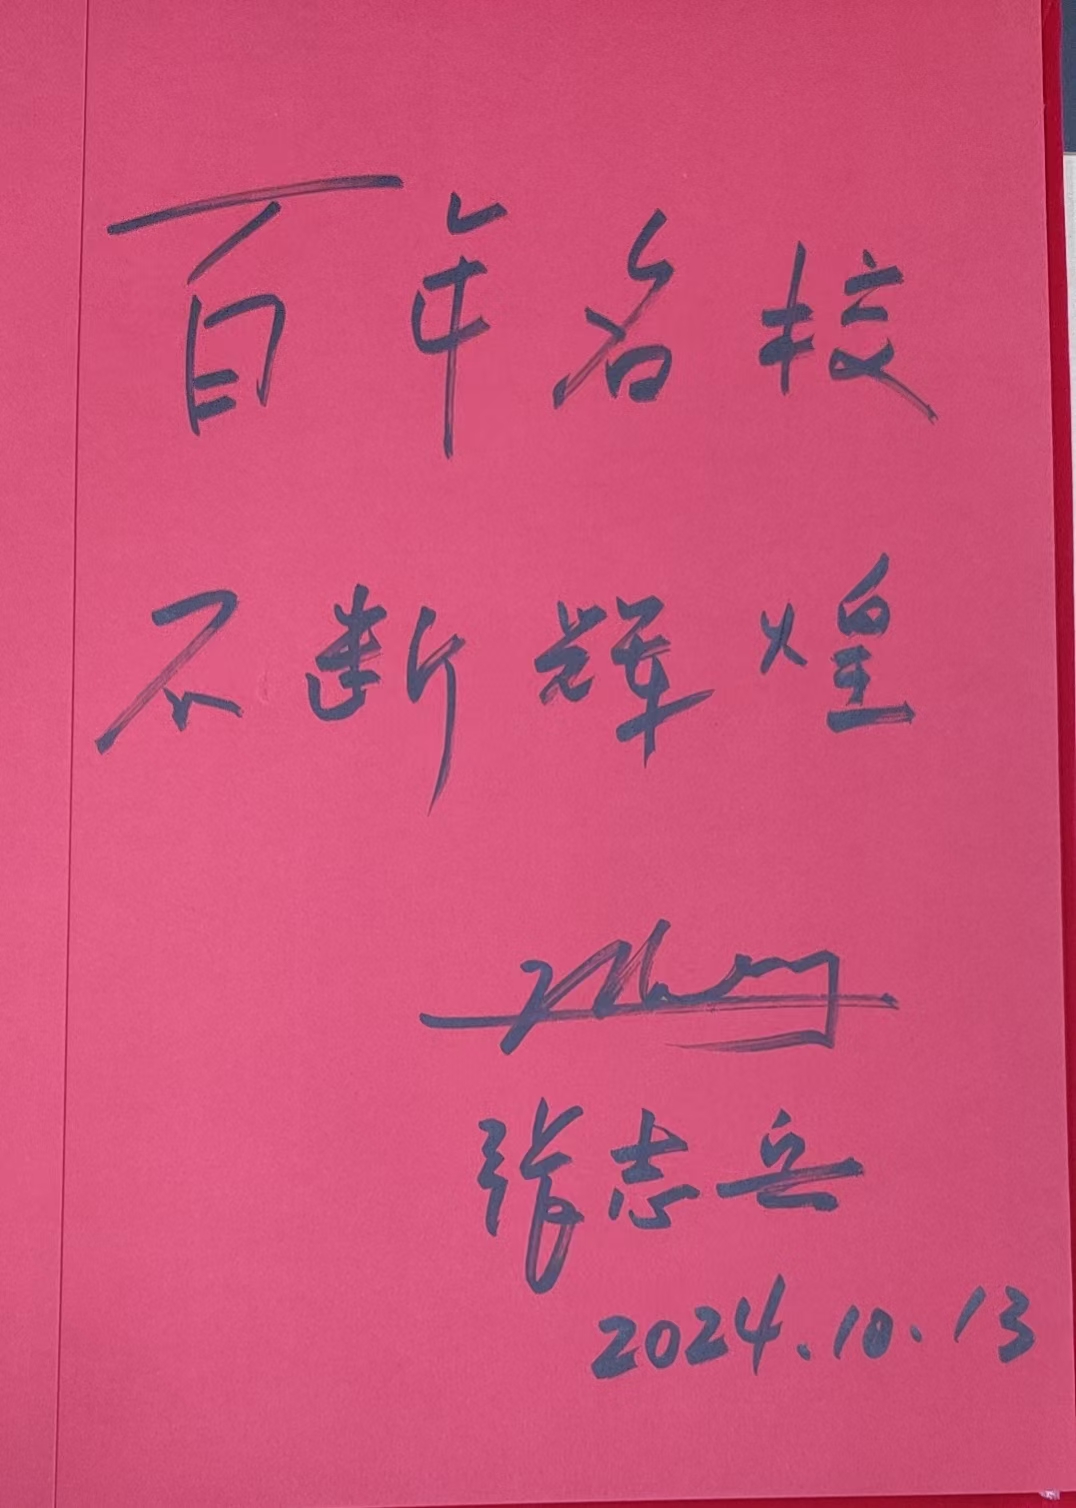 百年名校
不断辉煌
张志岳
2024.10.13